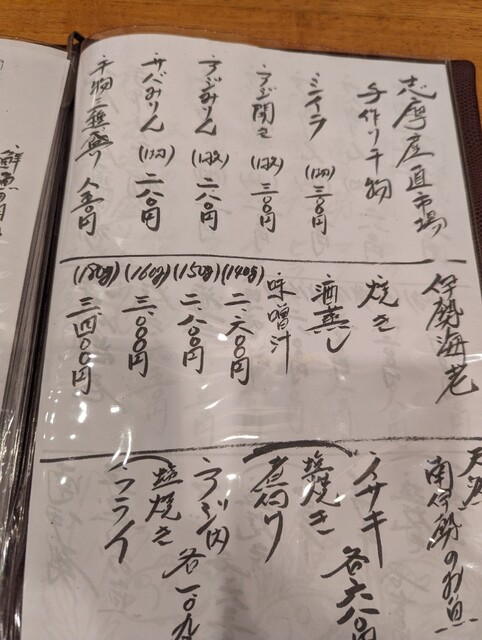 志摩産直市場
手作り干物
シイラ (1切) 三〇〇円
アジ開き (1枚) 三〇〇円
アジみりん (1枚) 二八〇円
サバみりん (1切) 二八〇円
干物三種盛り 八五〇円
伊勢海老
焼き
酒蒸し
味噌汁
(140g) 二、六〇〇円
(150g) 二、八〇〇円
(160g) 三、〇〇〇円
(180g) 三、四〇〇円
南伊勢のお魚
イサキ 各六八〇円
塩焼き
煮付け
アジ
塩焼き
フライ